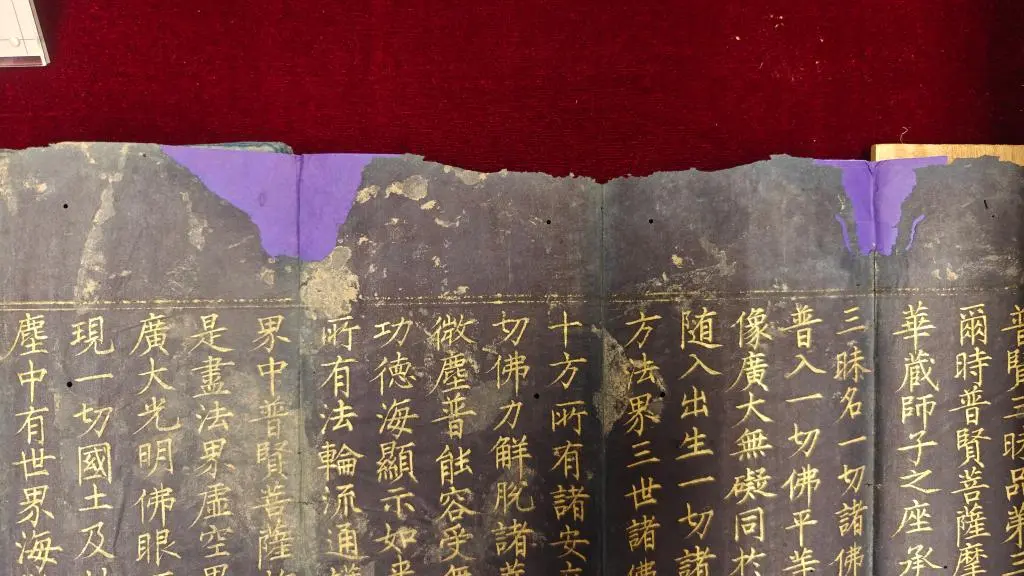 普賢三昧品第三
爾時普賢菩薩摩
華蔵師子之座承
三昧名一切諸佛
普入一切佛平等
像廣大無礙同於
随入出生一切諸
方法界三世諸佛
十方所有諸安立
切佛力解脫諸菩
微塵普能容受無
功德海顯示如來
所有法輪流通
界中普賢菩薩
是盡法界虛空界
廣大光明佛眼
現一切國土及
塵中有世界海